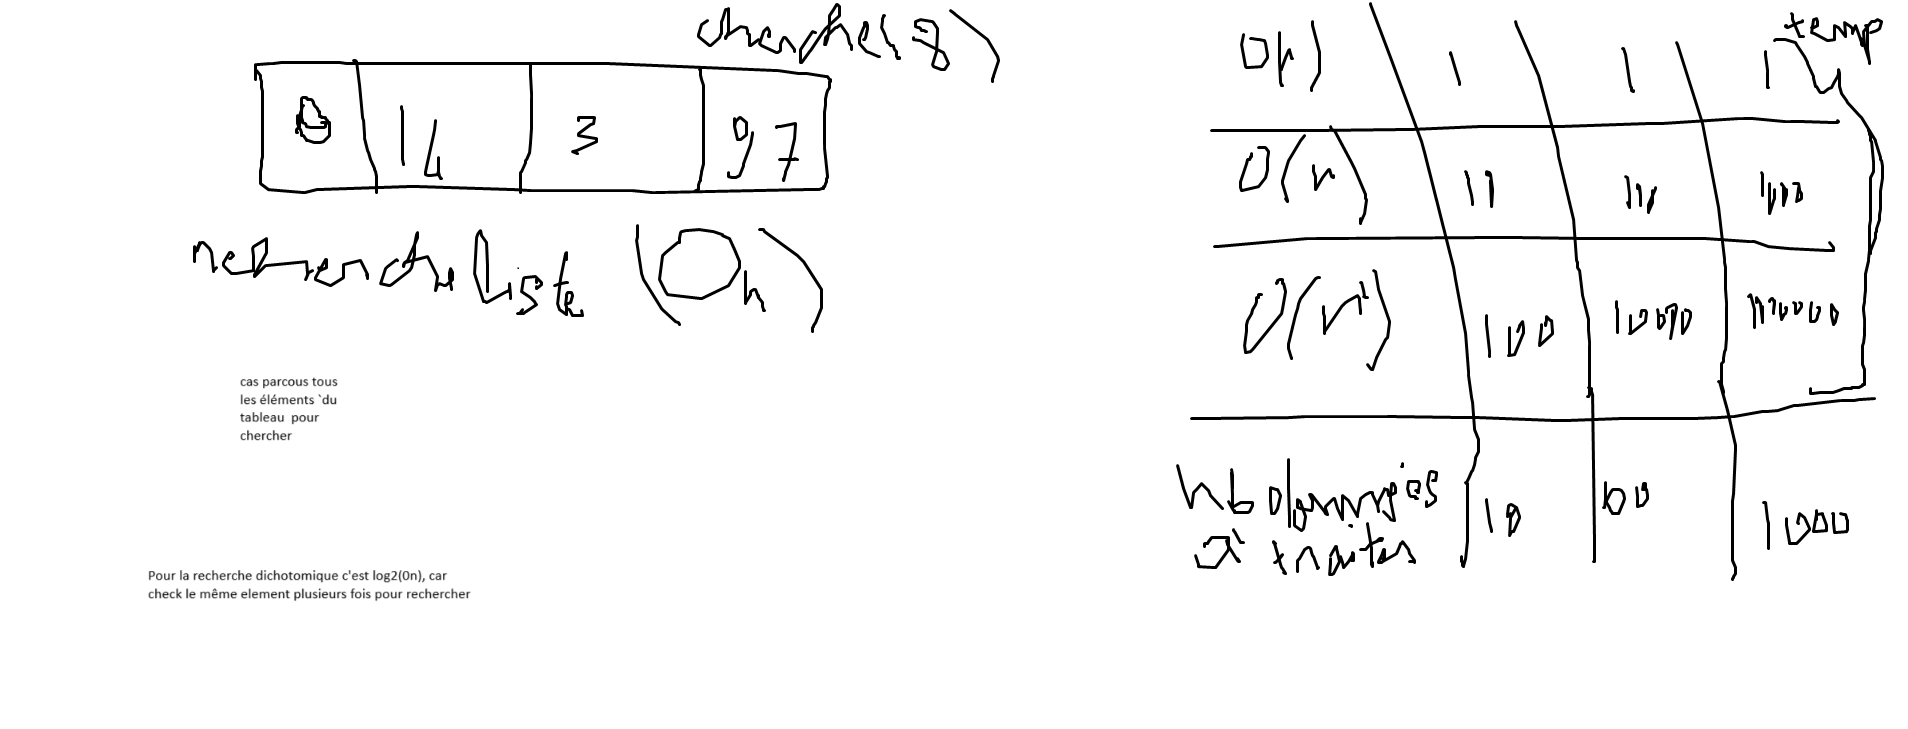 chercher(8)
14 3 97
recherche liste (On)
cas parcous tous
les éléments `du
tableau  pour
chercher
Pour la recherche dichotomique c'est log2(0n), car
check le même element plusieurs fois pour rechercher
temp
O(1) 1 1 1
O(n)
O(n²) 100
nb données 10 1000
à traiter